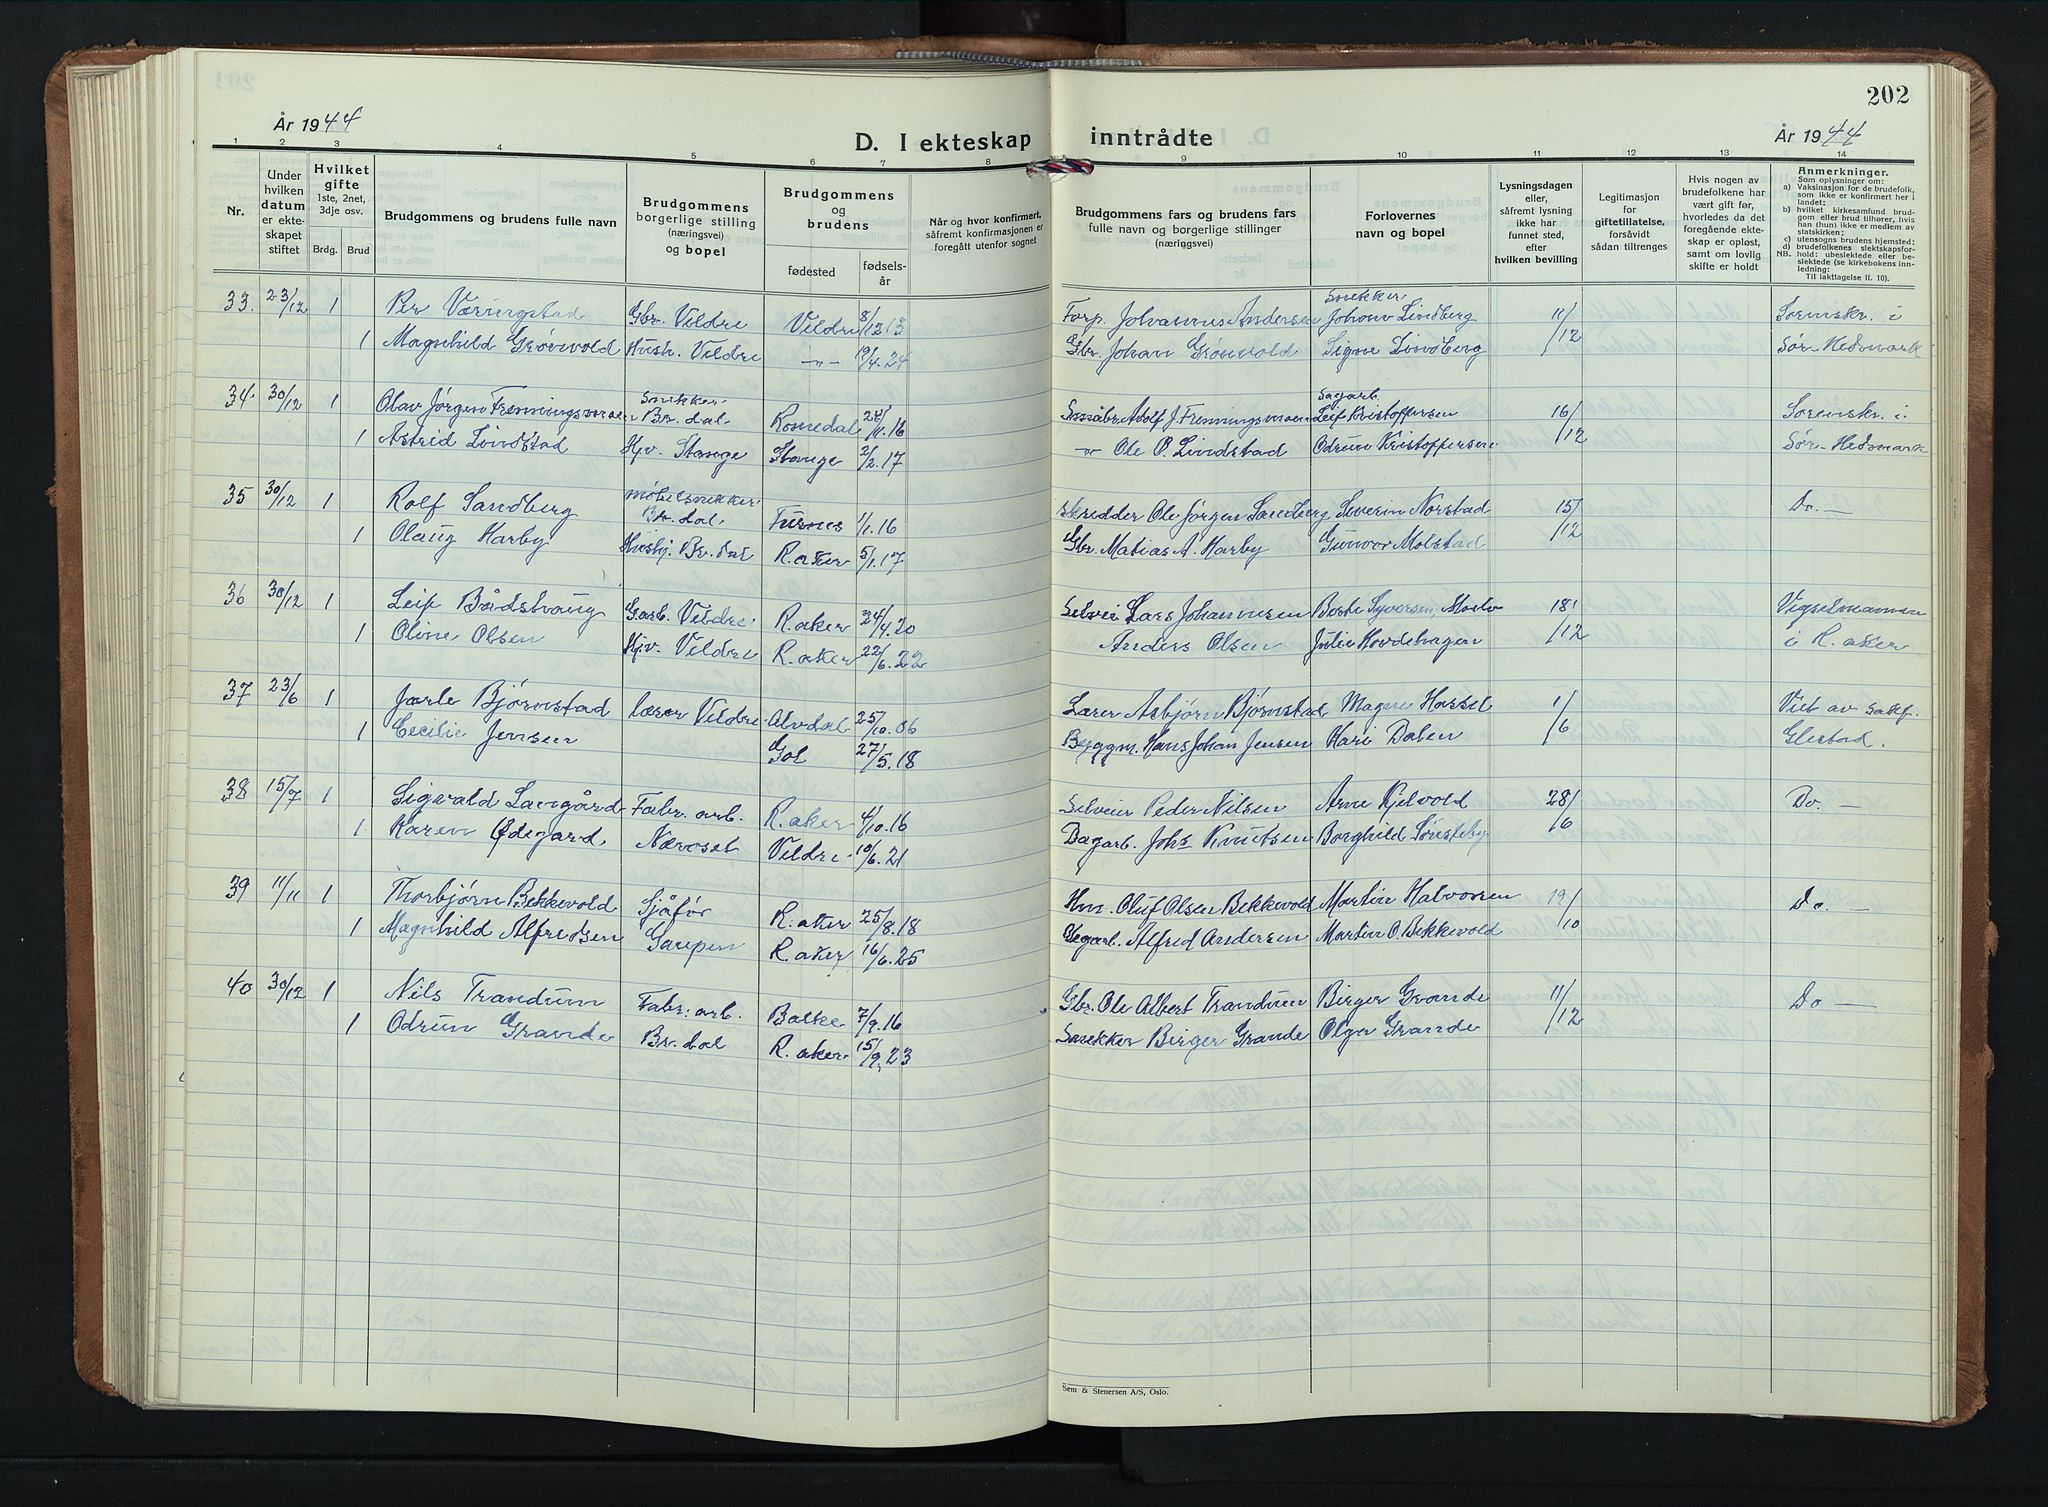 202
År 1944
D. I ekteskap inntrådte
År 1944
1 2 3 4 5 6 7 8 9 10 11 12 13 14
Nr.
Under hvilken datum er ekteskapet stiftet
Hvilket gifte 1ste, 2net, 3dje osv.
Brdg. Brud
Brudgommens og brudens fulle navn
Brudgommens borgerlige stilling (næringsvei) og bopel
Brudgommens og brudens
fødested
fødselsår
Når og hvor konfirmert, såfremt konfirmasjonen er foregått utenfor sognet
Brudgommens fars og brudens fars fulle navn og borgerlige stillinger (næringsvei)
Forlovernes navn og bopel
Lysningsdagen eller, såfremt lysning ikke har funnet sted, efter hvilken bevilling
Legitimasjon for giftetillatelse, forsåvidt sådan tiltrenges
Hvis nogen av brudefolkene har vært gift før, hvorledes da det foregående ekteskap er opløst, samt om lovlig skifte er holdt
Anmerkninger.
Som oplysninger om:
a) Vaksinasjon for de brudefolk, som ikke er konfirmert her i landet;
b) hvilket kirkesamfund brudgom eller brud tilhører, hvis han (hun) ikke er medlem av statskirken;
c) utensogns brudens hjemsted;
d) brudefolkenes slektskapsforhold: ubeslektede eller beslektede (se kirkebokens innledning:
NB. Til iakttagelse II. 10).
33. 23/12 1 Per Væringstad Gbr. Veldre Veldre 8/12 13 Forp. Johannes Andersen Snekker Johan Lindberg 11/12 Sorenskr. i
1 Magnhild Grønvold Hush. Veldre -"- 19/4.24 Gbr. Johan Grønvold Signe Lindberg Sør-Hedmark
34. 30/12 1 Olav Jørgen Fremmingsmoen Snekker Br.dal Romedal 28/11.16 Småbr. Adolf J. Fremmingsmoen Sagarb. Leif Kristoffersen 16/12 Sorenskr. i
1 Astrid Lindstad Hjv. Stange Stange 2/2.17 -"- Ole O. Lindstad Odrun Kristoffersen Sør-Hedmark
35 30/12 1 Rolf Sandberg møbelsnekker Br.dal Furnes 1/1.16 Skredder Ole Jørgen Sandberg Severin Norstad 15/12 Do. —
1 Olaug Harby Husbj. Br.dal R.aker 5/1.17 Gbr. Matias A. Harby Gunvor Molstad
36 30/12 1 Leif Bådstvang Garb. Veldre R.aker 24/4.20 Selvei Lars Johannesen Borte Syversen, Moelv 18/12 Vigselmannen
1 Oline Olsen Hjv. Veldre R.aker 22/6.22 Anders Olsen Julie Hovdehagen i R.aker
37 23/6 1 Jarle Bjørnstad lærer Veldre Alvdal 25/10.06 Lærer Asbjørn Bjørnstad Magne Hassel 1/6 Viet av sakf.
1 Cecilie Jensen Gol 27/5.18 Byggm. Hans Johan Jensen Kari Dalen Glestad.
38 15/7 1 Sigvald Langård Fabr. arb. R.aker 4/10.16 Selveier Peder Nilsen Arne Kjelvold 28/6 Do. —
1 Karen Ødegård Næroset Veldre 10/6.21 Dagarb. Johs Knutsen Borghild Sønsteby
39 11/11 1 Thorbjørn Bekkevold Sjåfør R.aker 25/8.18 Hm. Oluf Olsen Bekkevold Martin Halvorsen 19/10 Do. —
1 Magnhild Alfredsen Gaupen R.aker 16/6.25 Vegarb. Alfred Andersen Martin O. Bekkevold
40 30/12 1 Nils Trandum Fabr. arb. Balke 7/9.16 Gbr. Ole Albert Trandum Birger Grande 11/12 Do —
1 Odrun Grande Br.dal R.aker 15/9.23 Snekker Birger Grande Olger Grande
Sem & Stenersen A/S, Oslo.